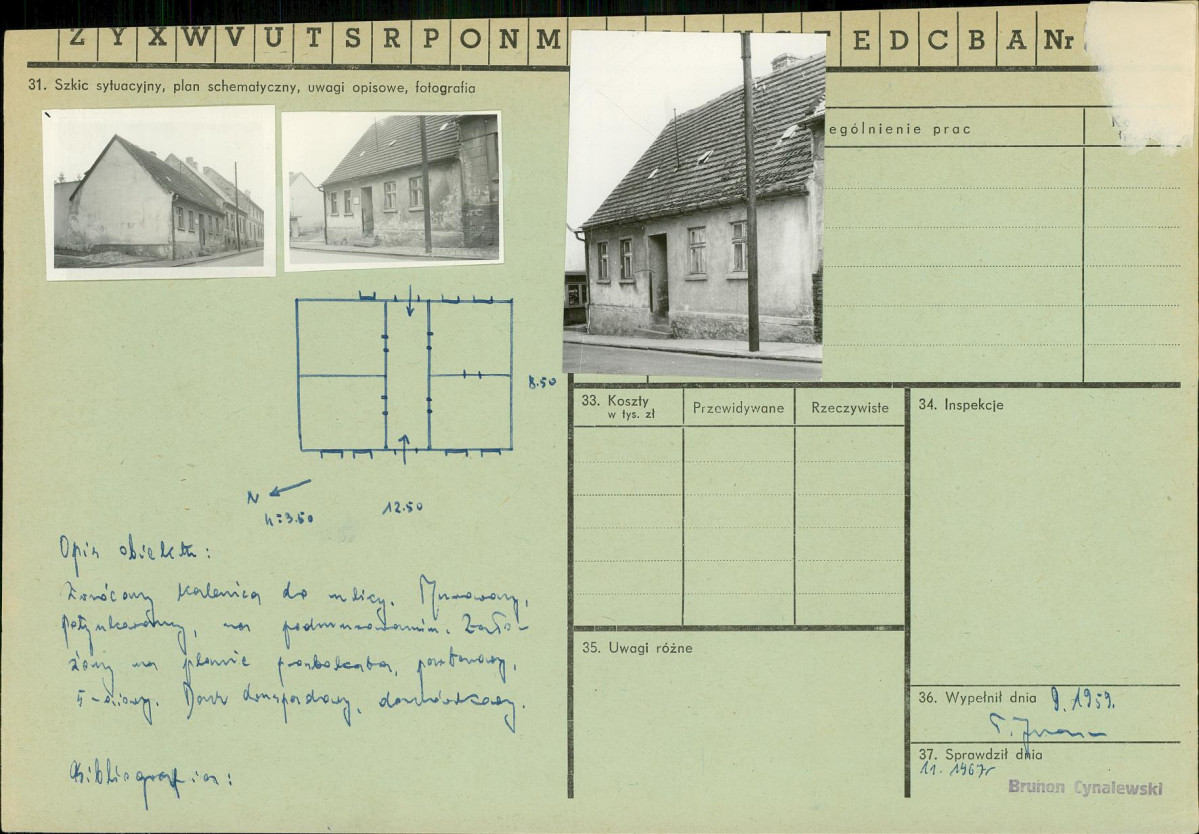 Z Y X W V U T S R P O N M E D C B A Nr
31. Szkic sytuacyjny, plan schematyczny, uwagi opisowe, fotografia
ególnienie prac
8.50
N
h=3.50
12.50
Opis obiektu:
Zwrócony kalenicą do ulicy. Murowany,
potynkowany, na podmurowaniu. Zało-
żony na planie prostokąta, parterowy,
5-osiowy. Dach dwuspadowy, dachówkowy.
Bibliografia:
33. Koszty
w tys. zł
Przewidywane
Rzeczywiste
34. Inspekcje
35. Uwagi różne
36. Wypełnił dnia 9.1959.
37. Sprawdził dnia
11. 1967r
Brunon Cynalewski